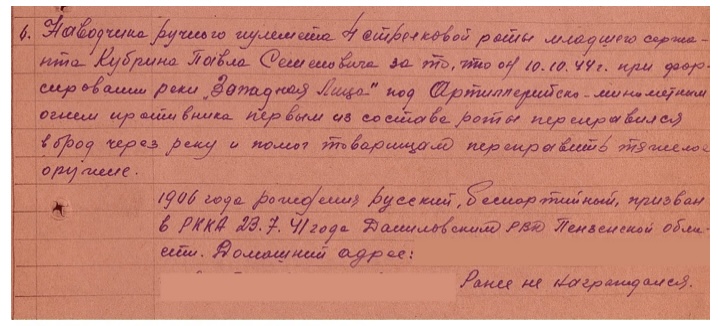 6. Наводчика ручного пулемета 4 стрелковой роты младшего сержа-
нта Кубрина Павла Семеновича за то, что он 10.10.44г. при фор-
сировании реки „Западная Лица" под Артиллерийско-минометным
огнем противника первым из состава роты переправился
вброд через реку и помог товарищам переправить тяжелое
оружие.
1906 года рождения, русский, беспартийный, призван
в РККА 23.7.41 года Даниловским РВК Пензенской обла-
сти. Домашний адрес:
Ранее не награждался.